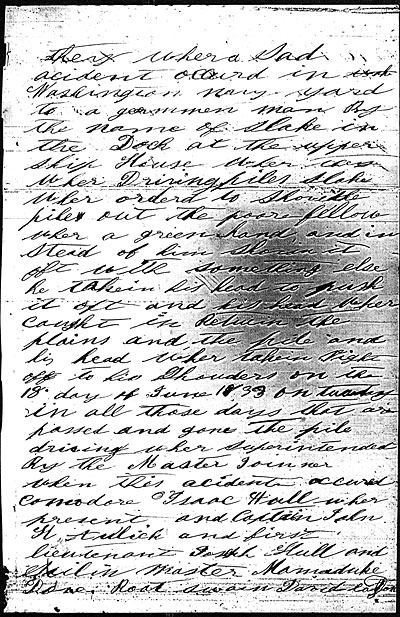 ther wher a Sad
acident occurd in
Washington navy yard
to a gormmen man By
the name of Slake in
the Dock at the upper
ship House wher
wher Driving piles Slake
wher orderd to Shove the
piles out the poor fellow
wher a green hand and in
Stead of him Shovin it
oft with something else
he takein his head to push
it oft and his head wher
caught in Betwain the
plains and the pile and
his head wher takein Right
off to his Shoulders on the
18 day of June 1833 on
in all those days that are
passed and gone the pile
driving wher superintended
By the Master Joinner
when this acident occured
comodore Isaac Hull wher
present and Captain John
H and first
lieutenant Joseph Hull and
Sailin Master Mamaduke
Dove Boat swain David Eaton